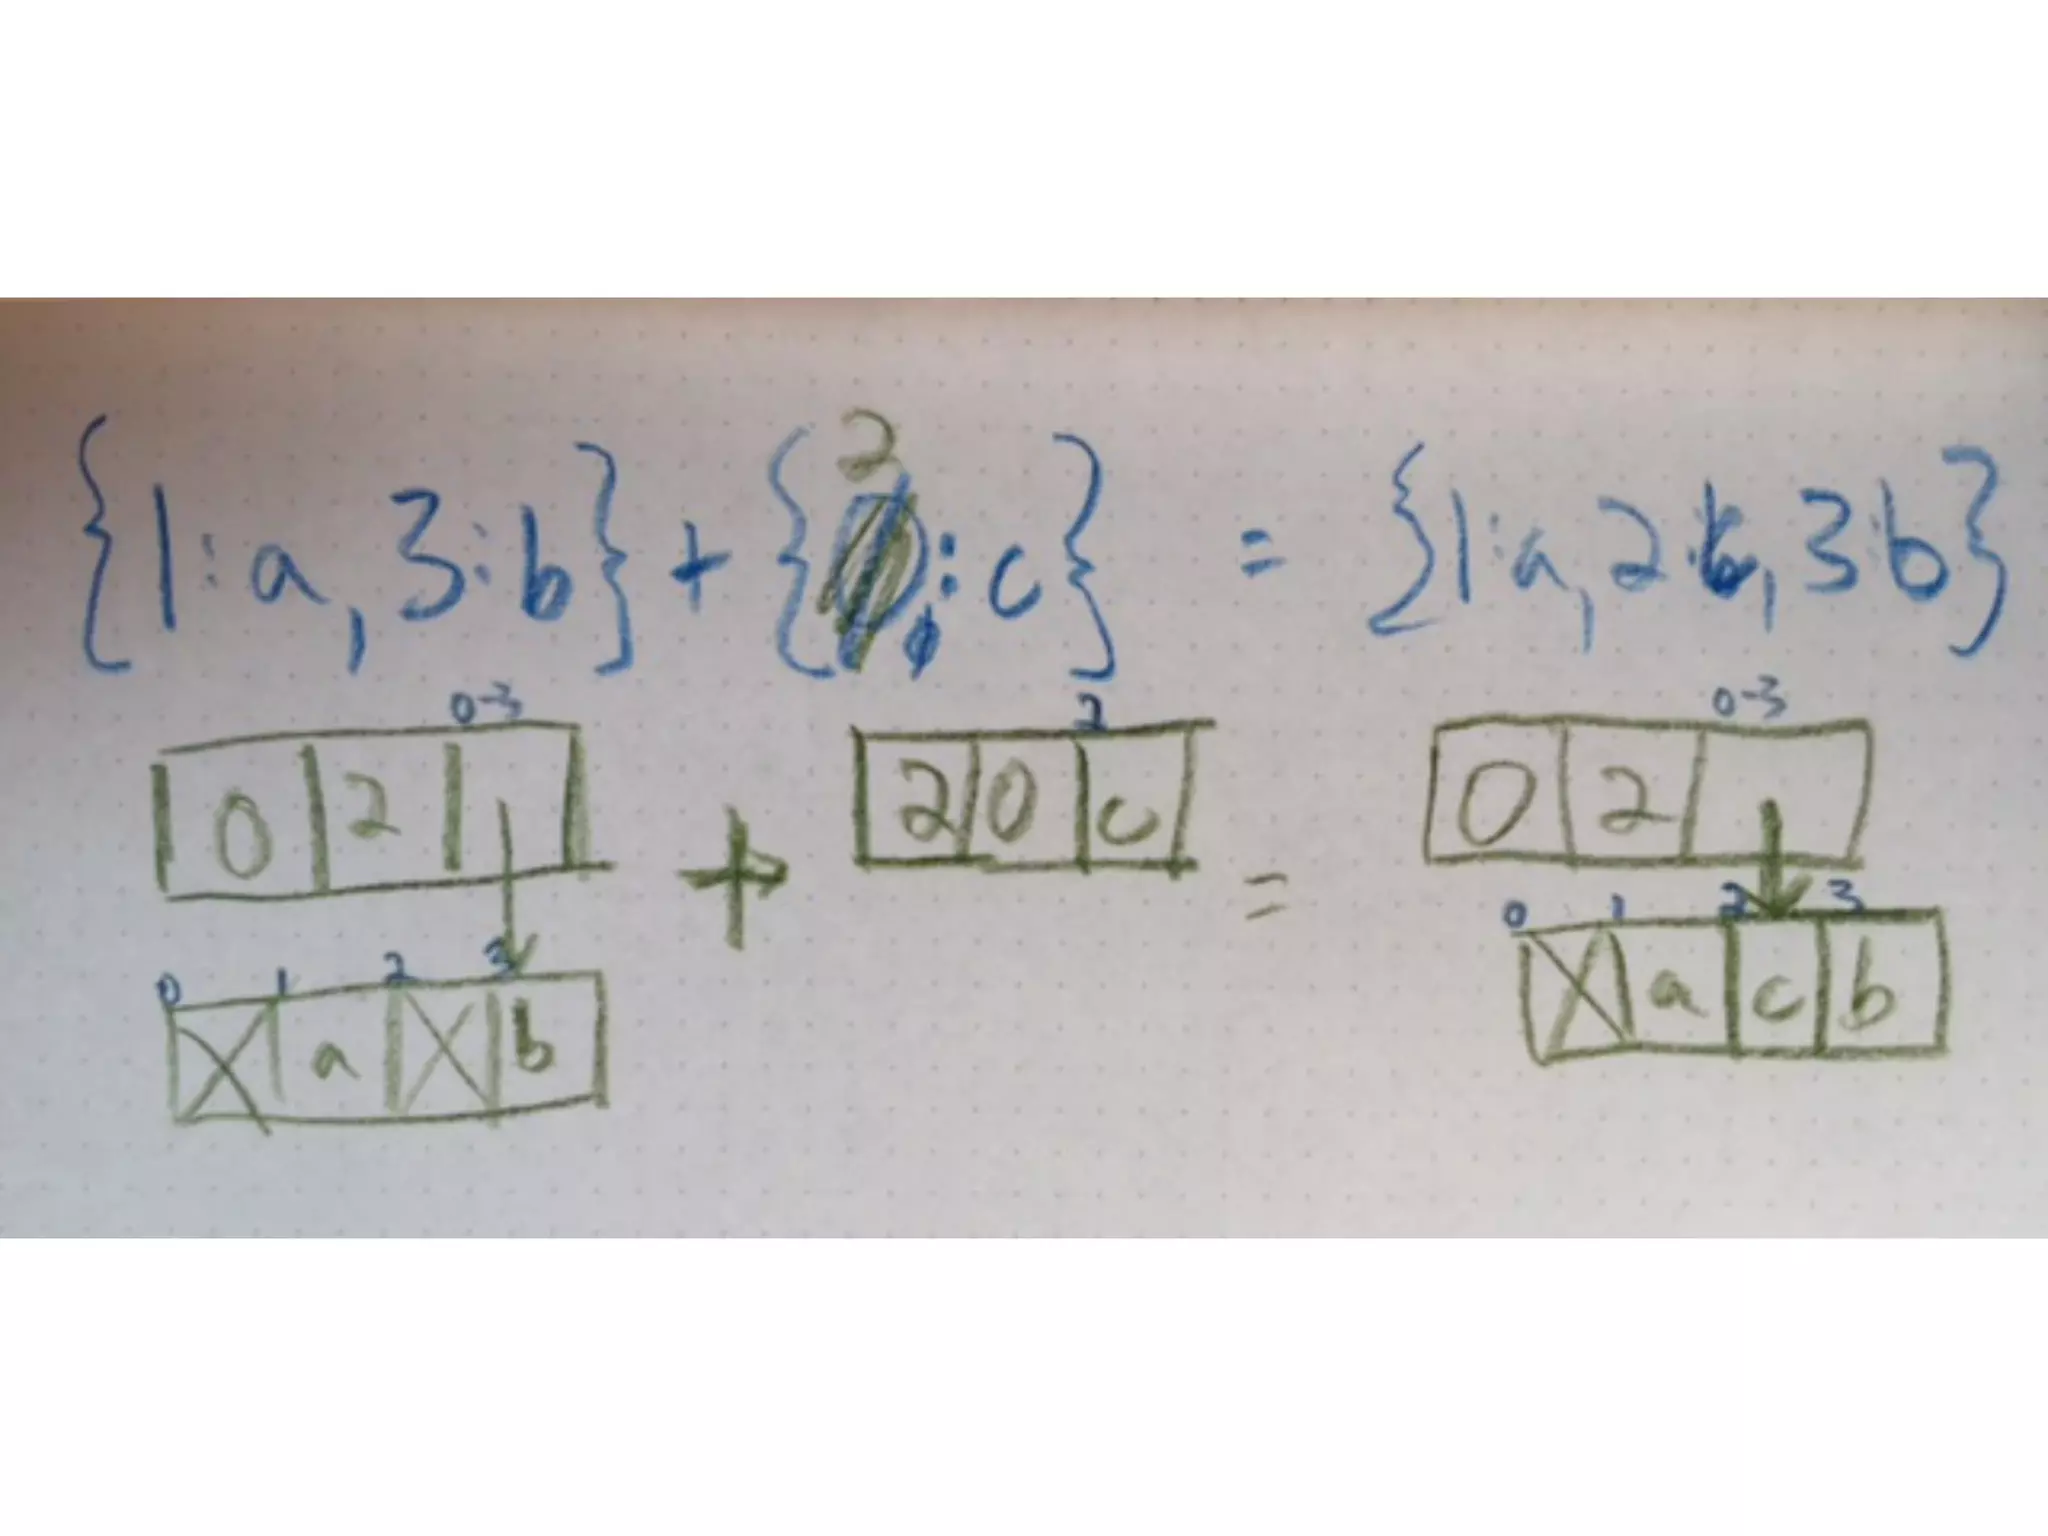 2
{1:a, 3:b} + { :c} = {1:a, 2:b, 3:b}
0-3 2 0-3
0 2 + 2 0 c = 0 2
0 1 2 3
a b
0 1 2 3
a c b